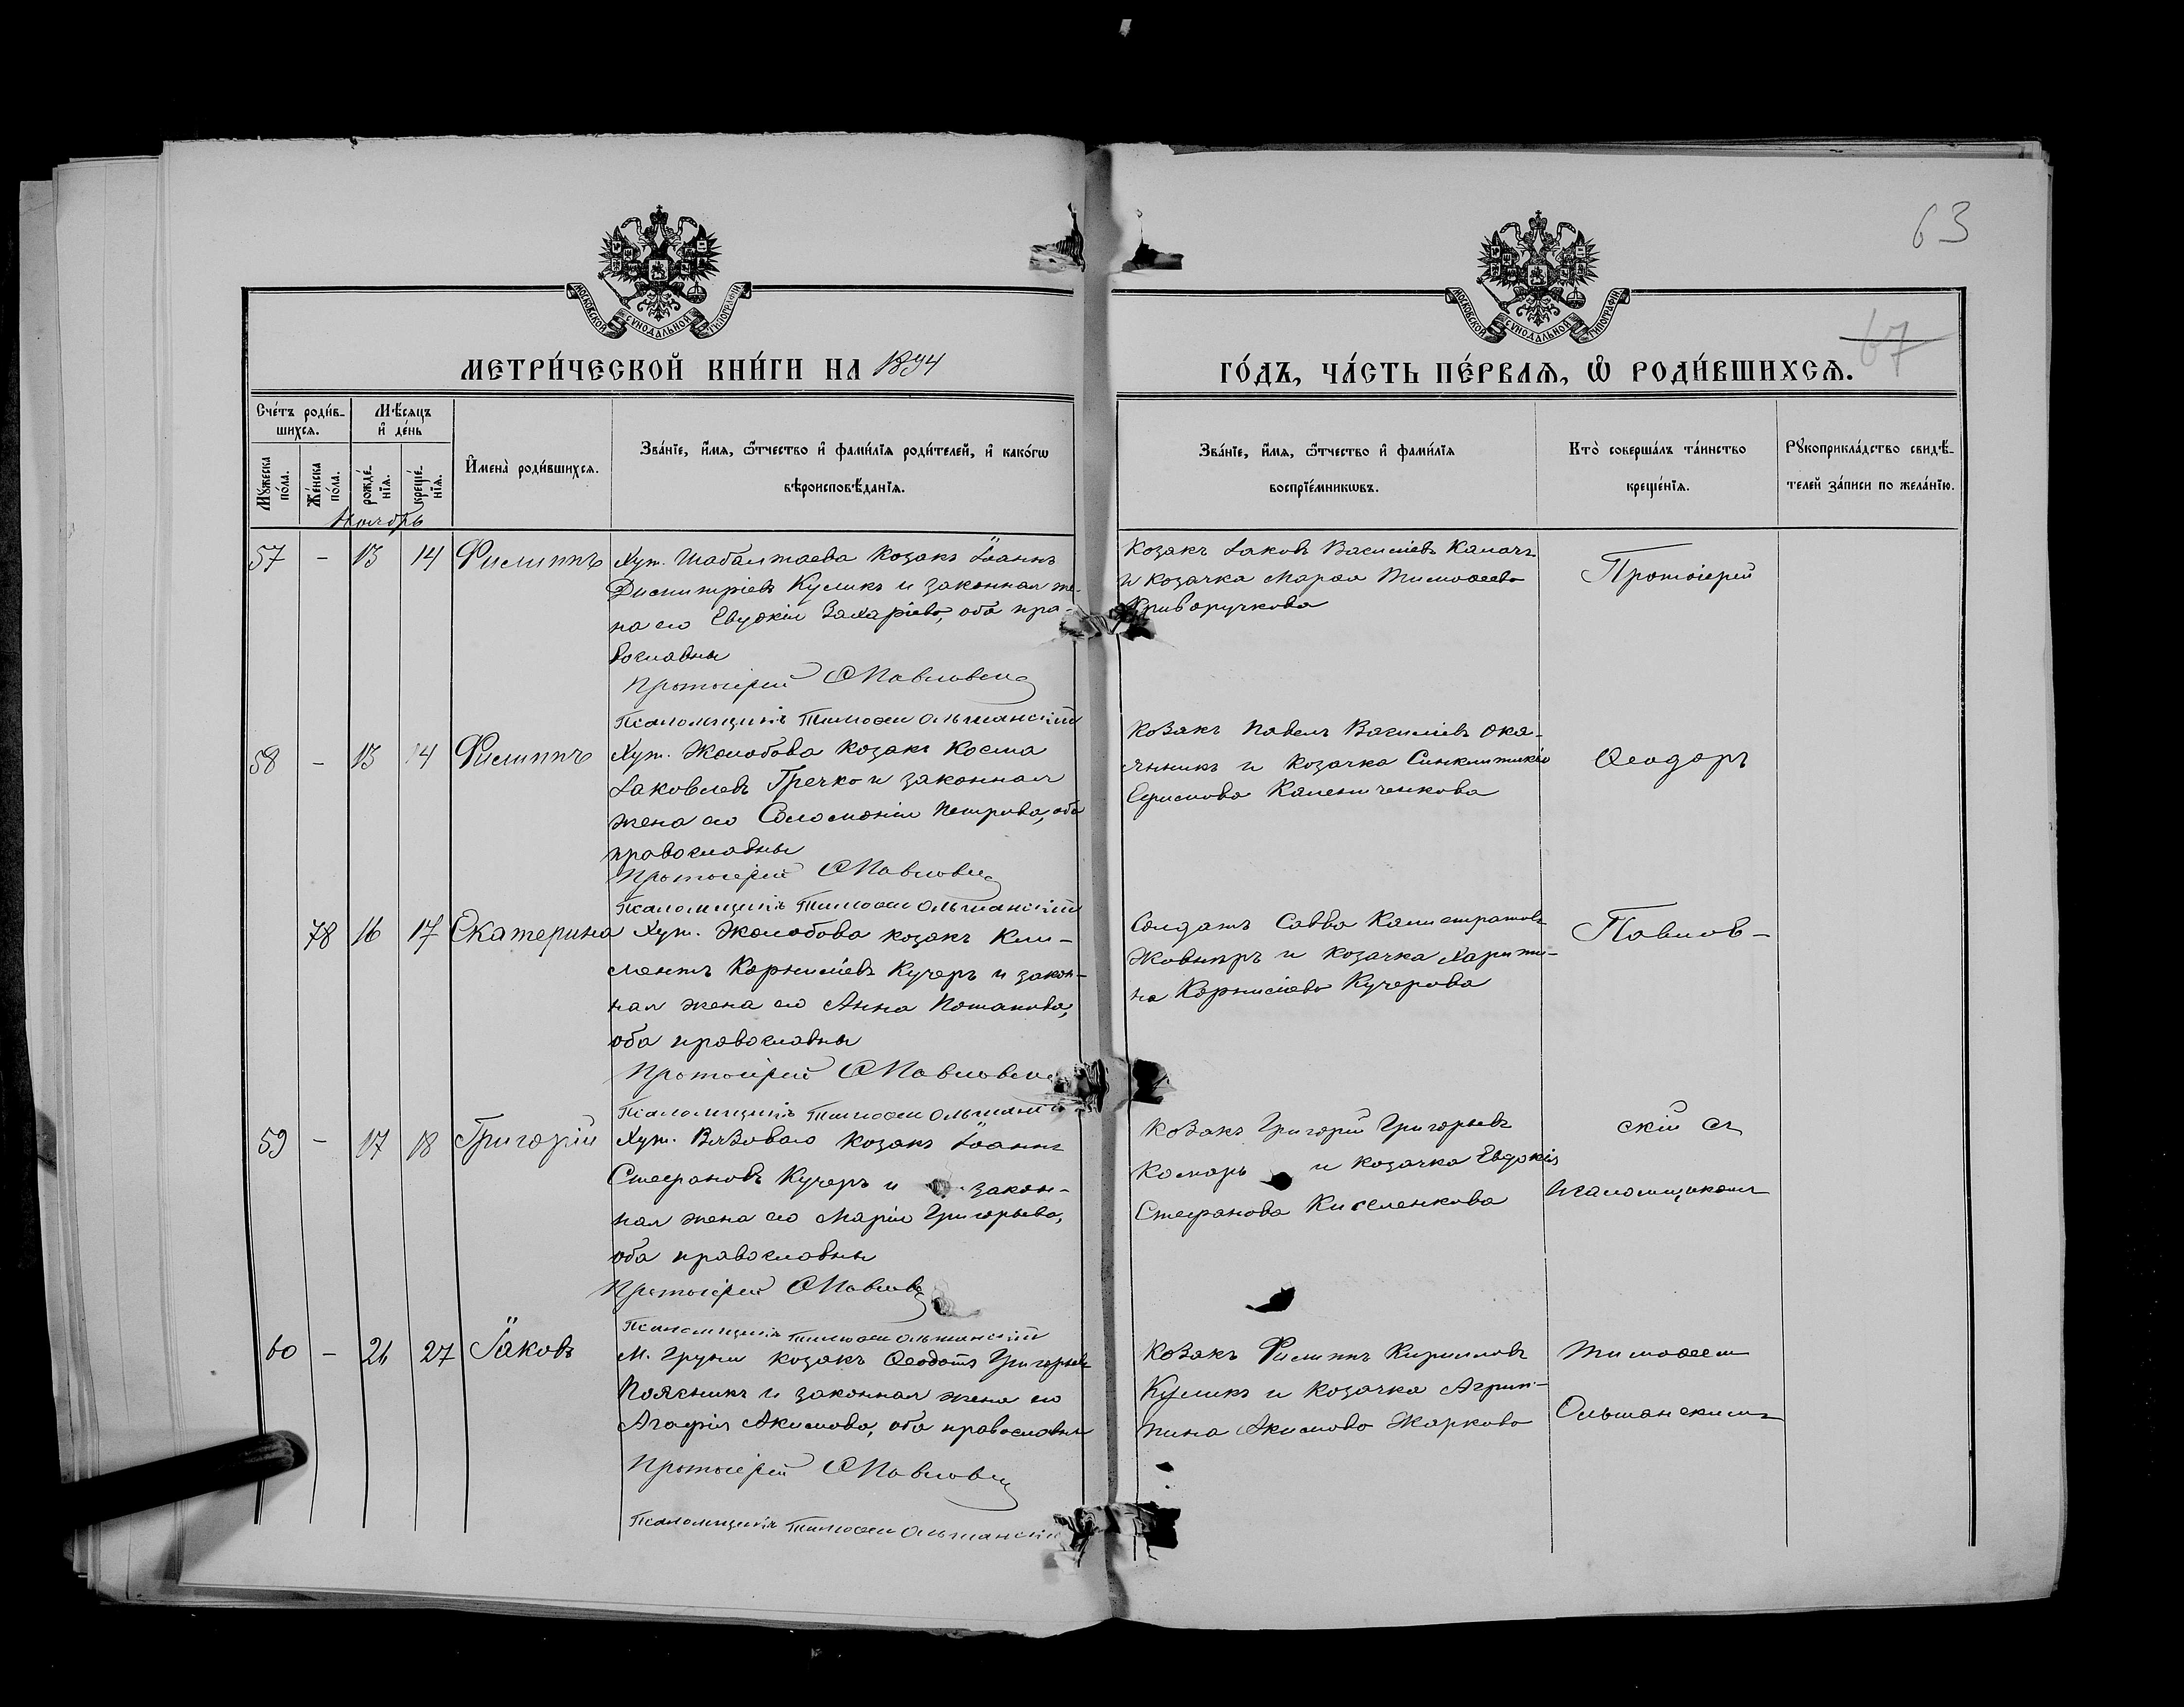 63
67
МОСКОВСКОЙ СѴНОДАЛЬНОЙ ТИПОГРАФІИ
МОСКОВСКОЙ СѴНОДАЛЬНОЙ ТИПОГРАФІИ
МЕТРИ́ЧЕСКОЙ КНИ́ГИ НА 1894
ГО́ДЪ, ЧА́СТЬ ПЕ́РВАѦ, Ѡ҆ РОДИ́ВШИХСѦ.
Сче́тъ роди́вшихсѧ.
Мꙋ́жеска по́ла.
Же́нска по́ла.
Мѣ́сѧцъ и҆ де́нь
рожде́нїѧ.
креще́нїѧ.
И҆мена̀ роди́вшихсѧ.
Зва́нїе, и҆́мѧ, ѻ҆́тчество и҆ фами́лїѧ роди́телей, и҆ како́гѡ
вѣроисповѣ́данїѧ.
Зва́нїе, и҆́мѧ, ѻ҆́тчество и҆ фами́лїѧ
воспрїе́мникѡвъ.
Кто̀ соверша́лъ та́инство
креще́нїѧ.
Рꙋкоприкла́дство свидѣ́-
телей за́писи по жела́нїю.
Ноябрь
57 – 13 14 Филиппъ
Хут. Шабалтаева козакъ Іоаннъ
Димитріевъ Куликъ и законная же-
на его Евдокія Захаріева, оба пра-
вославны
Протоіерей Ѳ Павловскій
Псаломщикъ Тимоѳей Ольшанскій
Козакъ Іаковъ Василіевъ Калачъ
и козачка Марѳа Тимоѳеева
Криворучкова
Протоіерей
58 – 13 14 Филиппъ
Хут. Жолобова козакъ Косма
Іаковлевъ Гречко и законная
жена его Соломонія Петрова, оба
православны
Протоіерей Ѳ Павловскій
Псаломщикъ Тимоѳей Ольшанскій
Козакъ Павелъ Василіевъ Ока-
янникъ и козачка Синклитикія
Ефимова Калениченкова
Ѳеодоръ
78 16 17 Екатерина
Хут. Жолобова козакъ Кли-
ментъ Корниліевъ Кучеръ и закон-
ная жена его Анна Потапова,
оба православны
Протоіерей Ѳ Павловскій
Псаломщикъ Тимоѳей Ольшанскій
Солдатъ Савва Калистратовъ
Жовниръ и козачка Харити-
на Корниліева Кучерова
Павлов-
59 – 17 18 Григорій
Хут. Вязоваго козакъ Іоаннъ
Стефановъ Кучеръ и закон-
ная жена его Марія Григорьева,
оба православны
Протоіерей Ѳ Павловс
Псаломщикъ Тимоѳей Ольшанскій
Козакъ Григорій Григорьевъ
Комарь и козачка Евдокія
Стефанова Киселенкова
скій съ
псаломщикомъ
60 – 26 27 Іаковъ
М. Груни козакъ Ѳеодотъ Григорьевъ
Поясникъ и законная жена его
Агафія Акимова, оба православны
Протоіерей Ѳ Павловскій
Псаломщикъ Тимоѳей Ольшанскій
Козакъ Филиппъ Кирилловъ
Куликъ и козачка Агрип-
пина Акимова Жаркова
Тимоѳеем
Ольшанскимъ